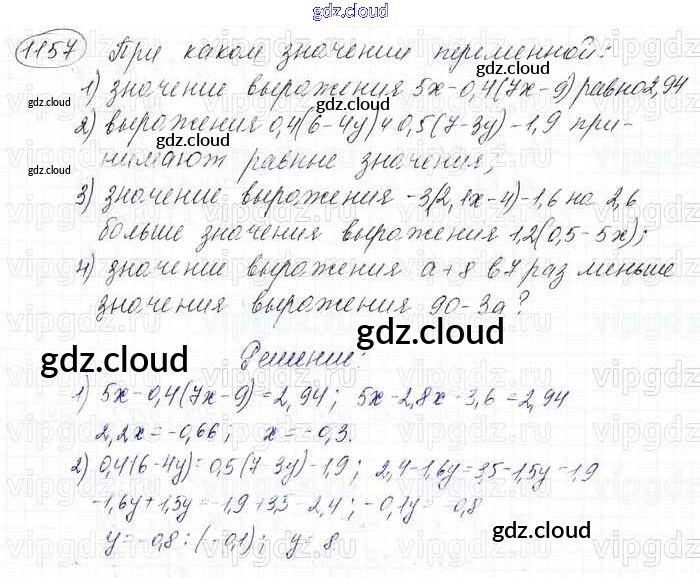 gdz.cloud
1157 При каком значении переменной:
1) значение выражения 5x-0,4(7x-9) равно 2,94
gdz.cloud gdz.cloud
2) выражения 0,4(6-4y) и 0,5(7-3y)-1,9 при-
нимают равные значения;
gdz.cloud
3) значение выражения -3(2,1x-4)-1,6 на 2,6
больше значения выражения 1,2(0,5-5x);
4) значение выражения a+8 в 7 раз меньше
значения выражения 90-3a?
gdz.cloud gdz.cloud
Решение:
1) 5x-0,4(7x-9)=2,94; 5x-2,8x+3,6=2,94
2,2x=-0,66; x=-0,3.
2) 0,4(6-4y)=0,5(7-3y)-1,9; 2,4-1,6y=3,5-1,5y-1,9
-1,6y+1,5y=-1,9+3,5-2,4; -0,1y=-0,8
gdz.cloud
y=-0,8:(-0,1); y=8
gdz.cloud